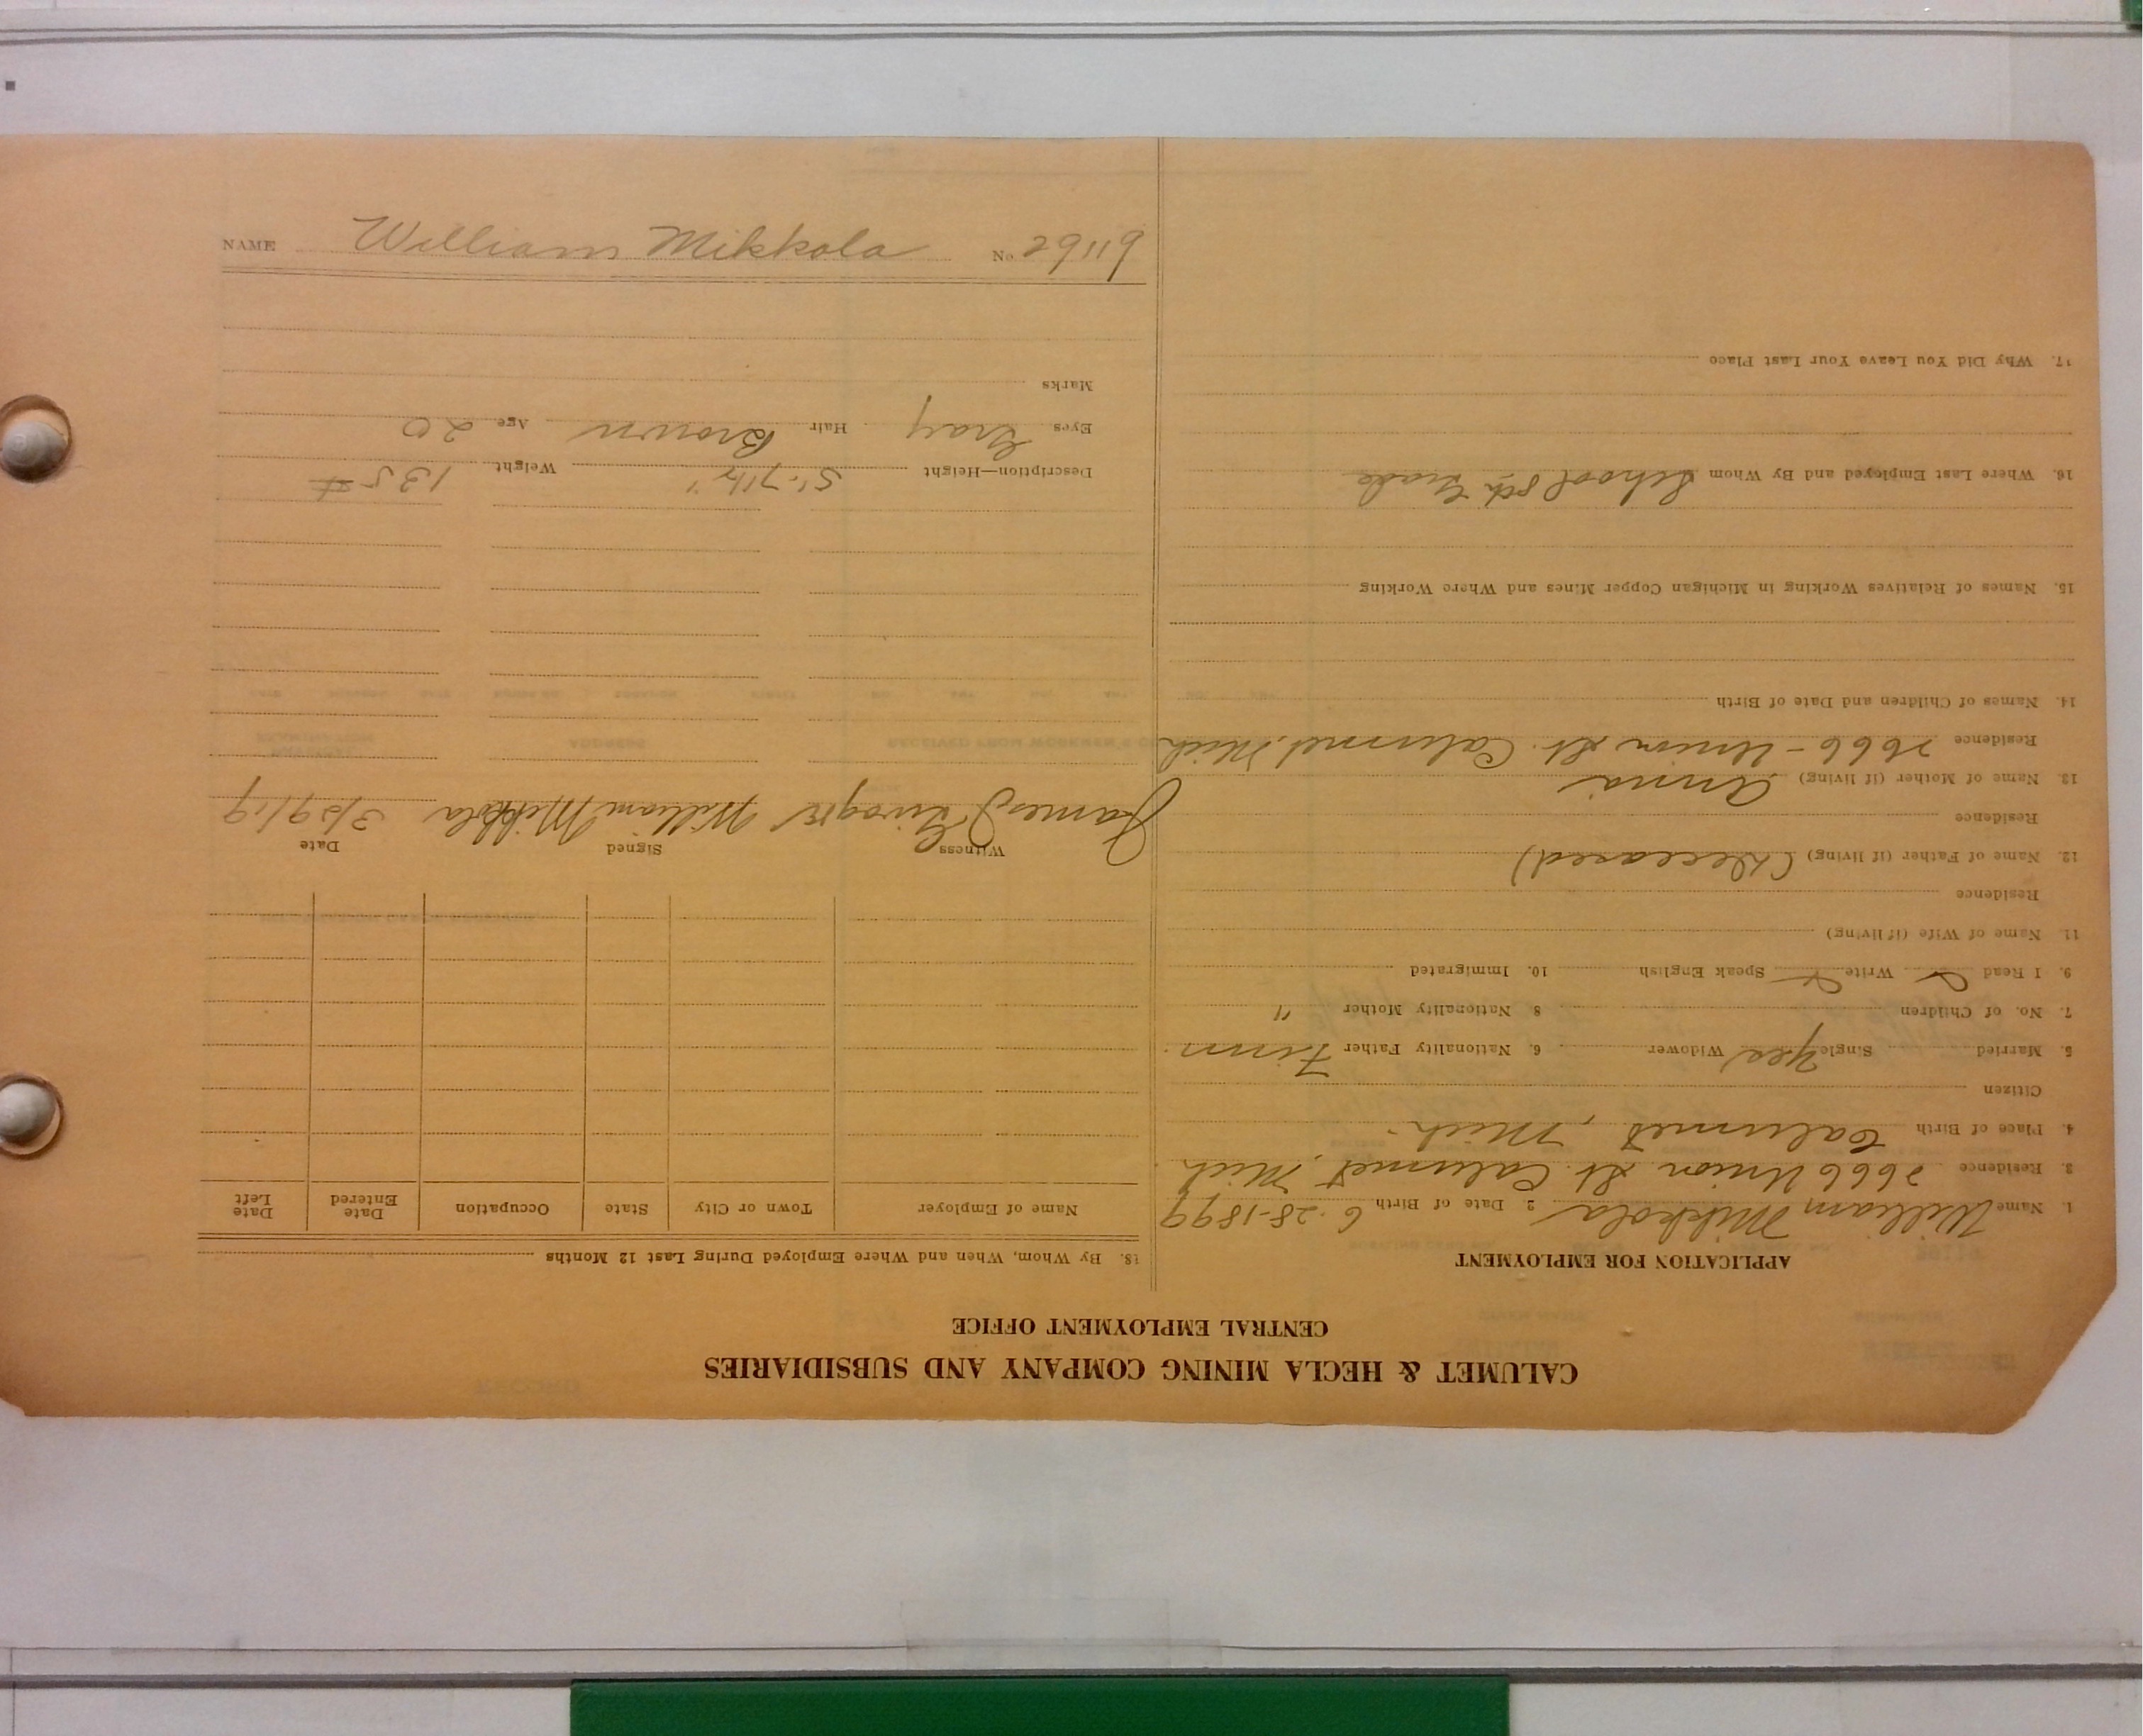 CALUMET & HECLA MINING COMPANY AND SUBSIDIARIES
CENTRAL EMPLOYMENT OFFICE
APPLICATION FOR EMPLOYMENT
1. Name William Mikkola 2. Date of Birth 6-28-1899
3. Residence 2666 Union St. Calumet, Mich
4. Place of Birth Calumet, Mich.
Citizen
5. Married Single Yes Widower 6. Nationality Father Finn
7. No. of Children 8 Nationality Mother "
9. I Read Write Speak English 10. Immigrated
11. Name of Wife (if living)
Residence
12. Name of Father (if living) (Deceased)
Residence
13. Name of Mother (if living) Anna
Residence 2666 - Union St. Calumet, Mich
14. Names of Children and Date of Birth
15. Names of Relatives Working in Michigan Copper Mines and Where Working
16. Where Last Employed and By Whom School 8th Grade
17. Why Did You Leave Your Last Place
18. By Whom, When and Where Employed During Last 12 Months
Name of Employer Town or City State Occupation Date Entered Date Left
Witness Signed Date
James J William Mikkola 3/29/19
Description—Height 5'-7½" Weight 135 #
Eyes Gray Hair Brown Age 20
Marks
NAME William Mikkola No. 29119